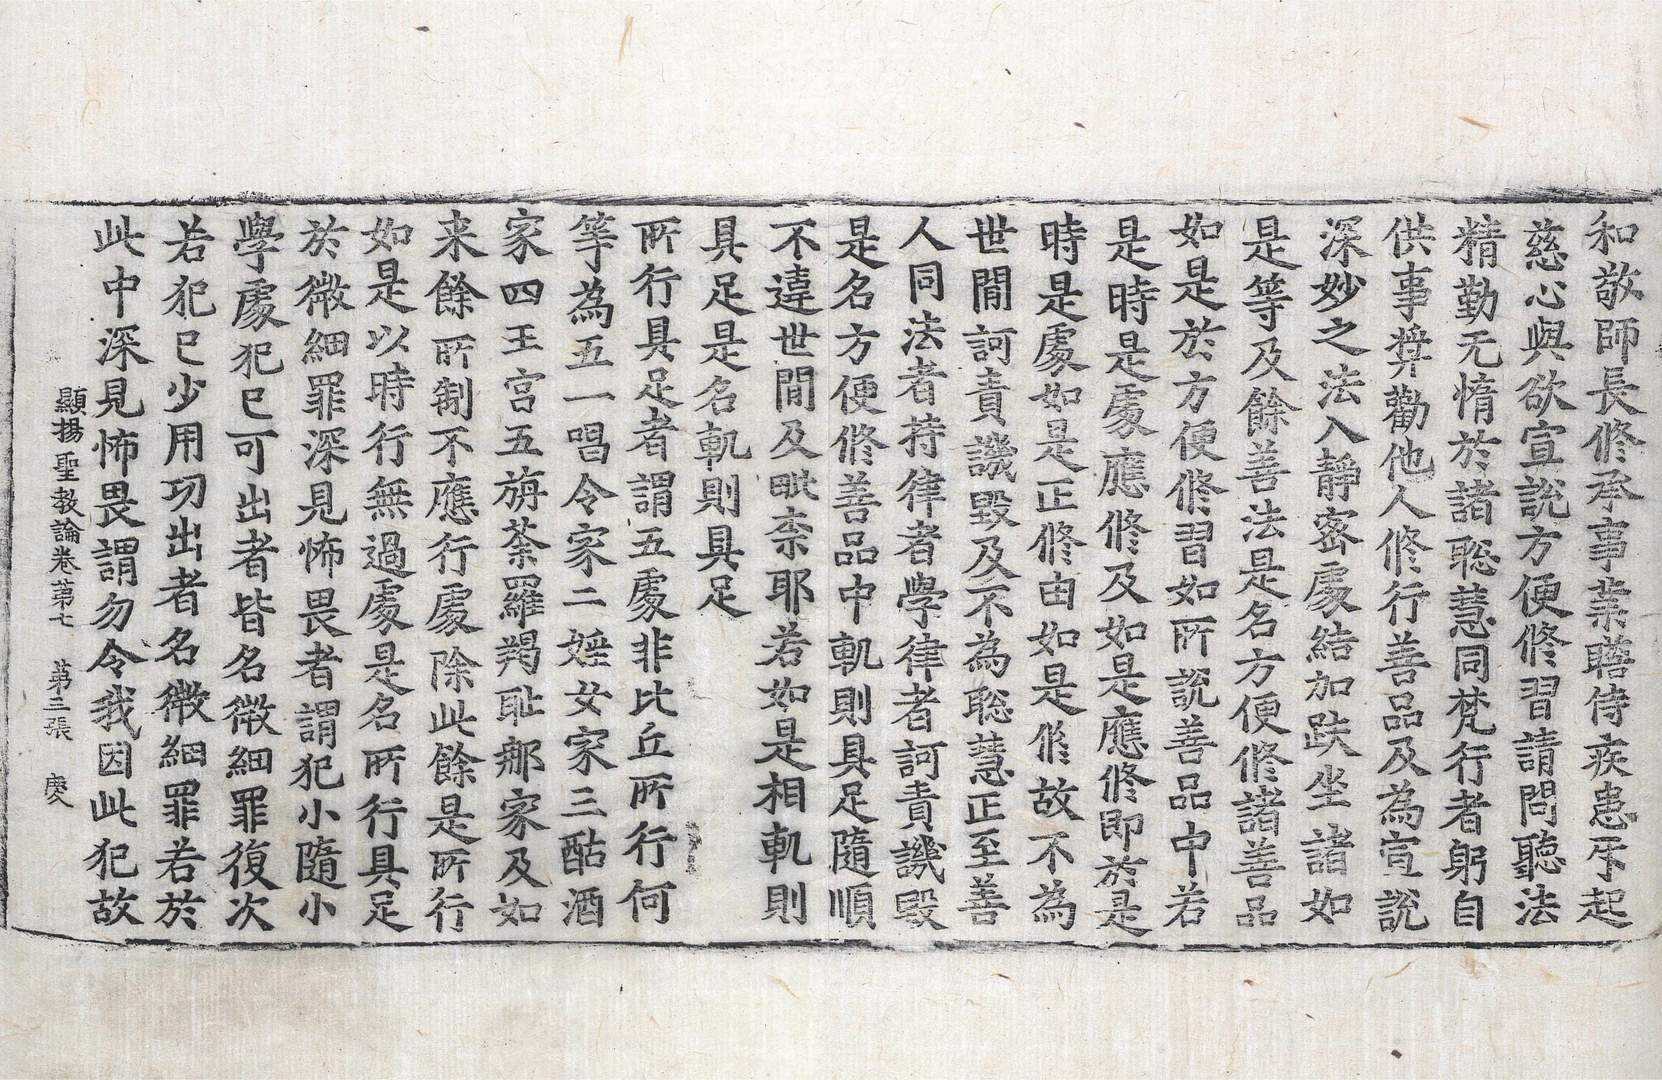 和敬師長修承事業瞻侍疾患斥起
慈心與欲宣說方便修習請問聽法
精勤无惰於諸聡慧同梵行者躬自
供事奬勸他人修行善品及為宣說
深妙之法入靜宻處結加趺坐諸如
是等及餘善法是名方便修諸善品
如是於方便修習如所說善品中若
是時是處應修及如是應修即於是
時是處如是正修由如是修故不為
世間訶責譏毀及不為聡慧正至善
人同法者持律者學律者訶責譏毀
是名方便修善品中軌則具足隨順
不違世間及毗柰耶若如是相軌則
具足是名軌則具足
所行具足者謂五處非比丘所行何
等為五一唱令家二婬女家三酤酒
家四王宮五旃荼羅羯耻那家及如
来餘所制不應行處除此餘是所行
如是以時行無過處是名所行具足
於微細罪深見怖畏者謂犯小隨小
學處犯已可出者皆名微細罪復次
若犯已少用功出者名微細罪若於
此中深見怖畏謂勿令我因此犯故
顯揚聖教論卷第七 第三張 慶